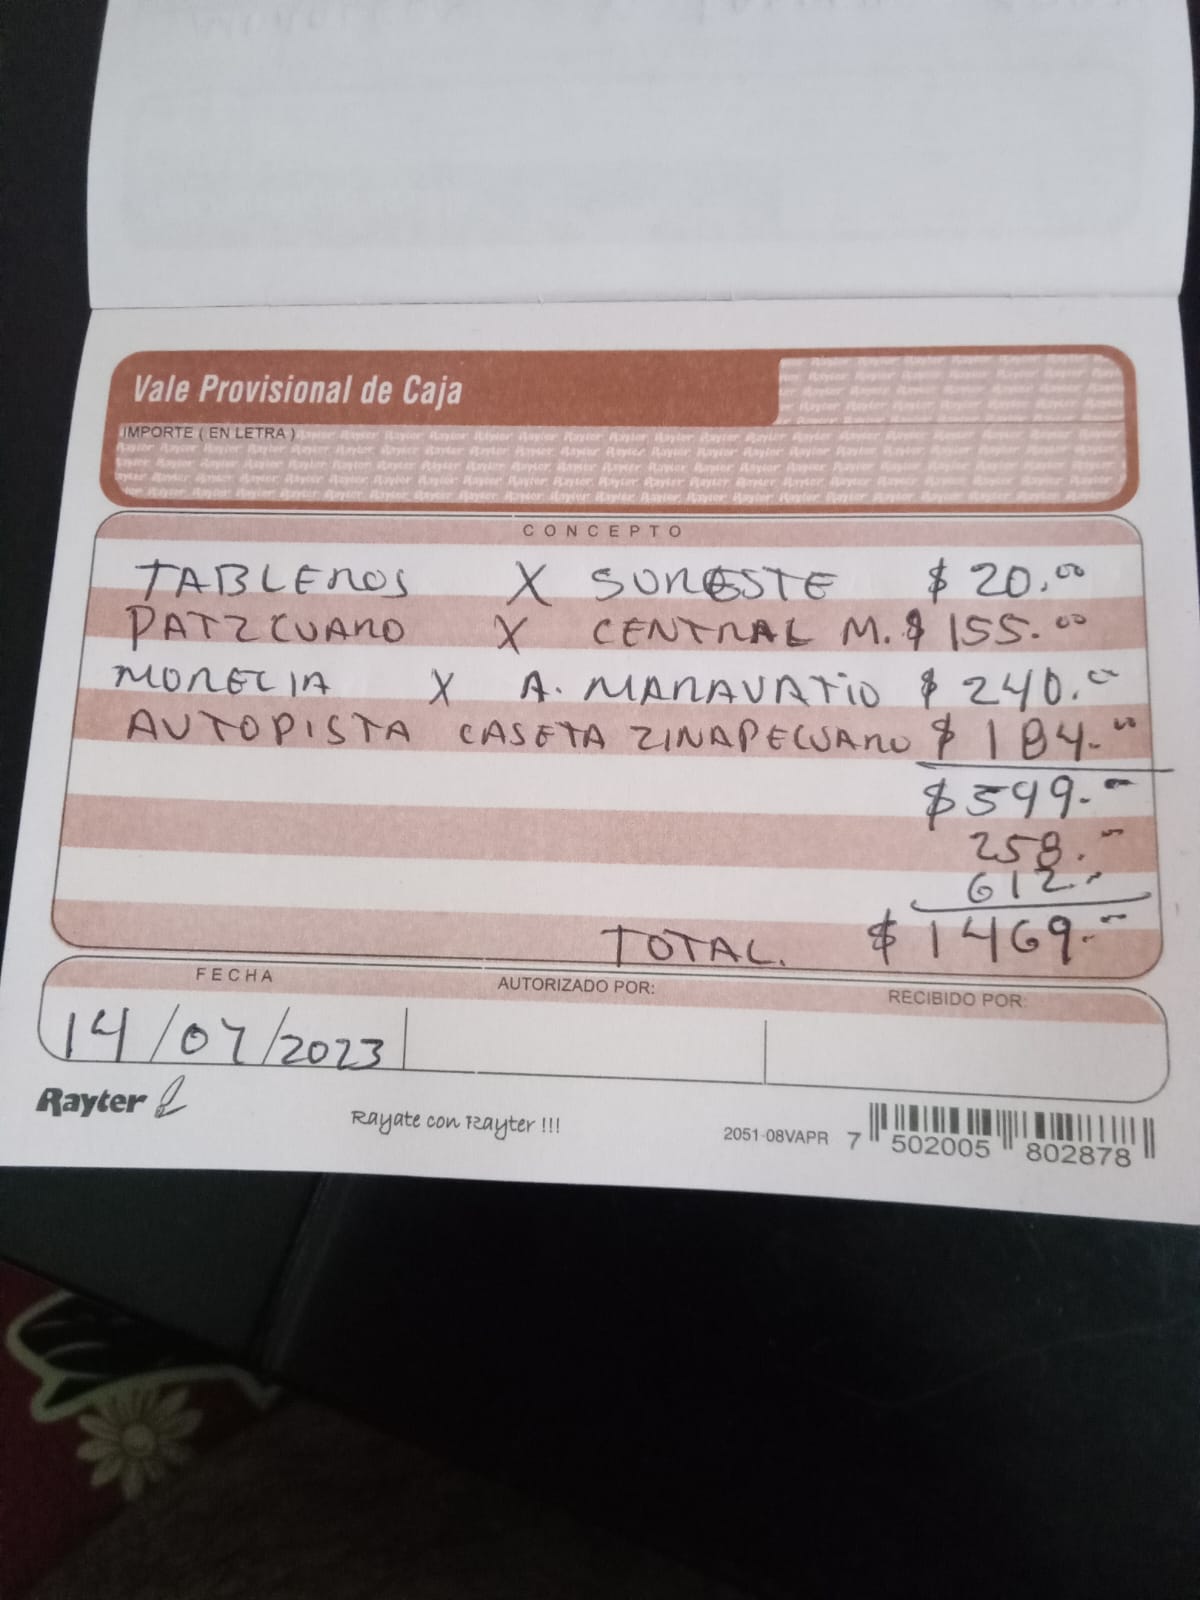 Vale Provisional de Caja
IMPORTE ( EN LETRA )
CONCEPTO
TABLEROS X SURESTE $ 20.00
PATZCUARO X CENTRAL M. $ 155.00
MORELIA X A. MARAVATIO $ 240.00
AUTOPISTA CASETA ZINAPECUARO $ 184.00
$599.-
258.-
612.-
TOTAL. $ 1469.-
FECHA AUTORIZADO POR: RECIBIDO POR:
14/07/2023
Rayter
Rayate con Rayter !!!
2051-08VAPR 7 502005 802878